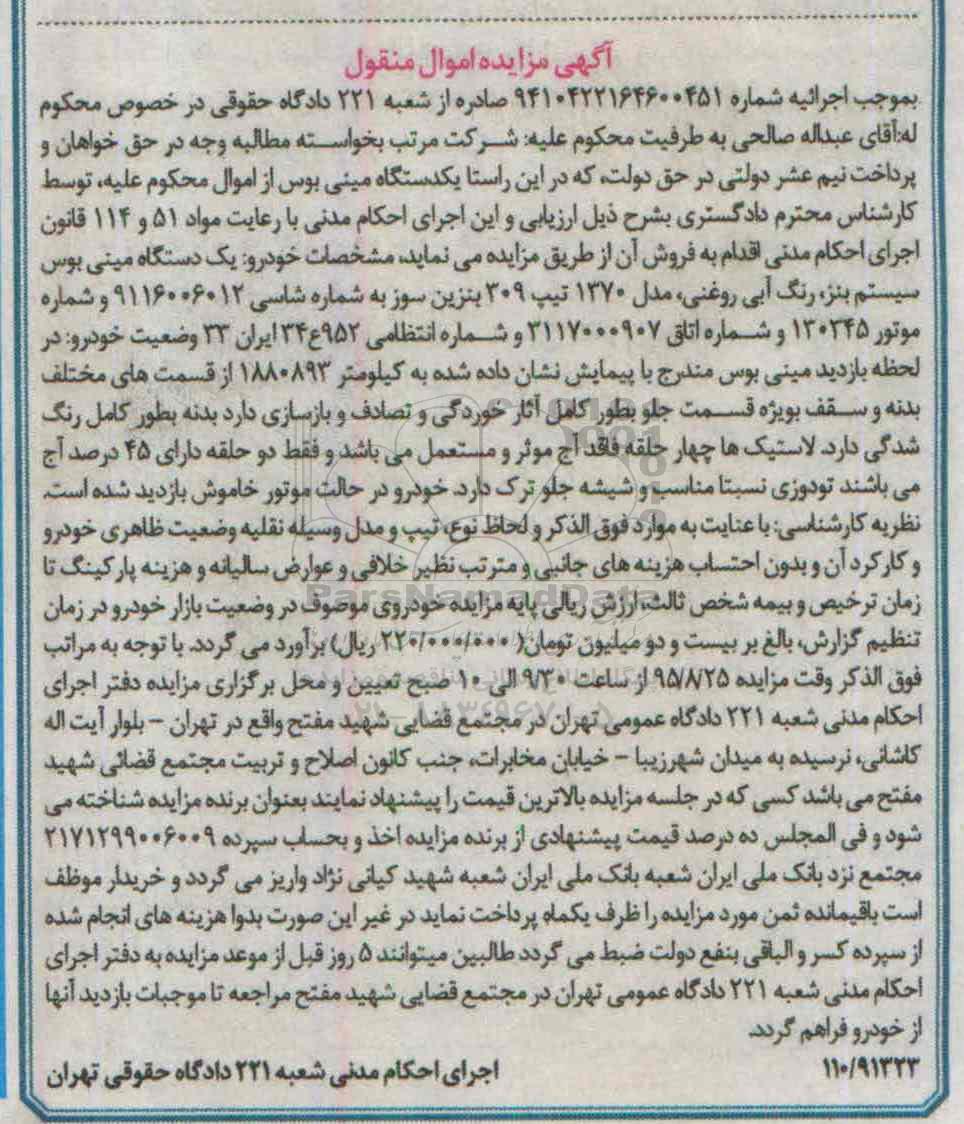 آگهی مزایده اموال منقول
بموجب اجرائیه شماره ۹۴۱۰۴۲۲۱۶۴۶۰۰۴۵۱ صادره از شعبه ۲۲۱ دادگاه حقوقی در خصوص محکوم
له:آقای عبداله صالحی به طرفیت محکوم علیه: شرکت مرتب بخواسته مطالبه وجه در حق خواهان و
پرداخت نیم عشر دولتی در حق دولت، که در این راستا یکدستگاه مینی بوس از اموال محکوم علیه، توسط
کارشناس محترم دادگستری بشرح ذیل ارزیابی و این اجرای احکام مدنی با رعایت مواد ۵۱ و ۱۱۴ قانون
اجرای احکام مدنی اقدام به فروش آن از طریق مزایده می نماید، مشخصات خودرو: یک دستگاه مینی بوس
سیستم بنز، رنگ آبی روغنی، مدل ۱۳۷۰ تیپ ۳۰۹ بنزین سوز به شماره شاسی ۹۱۱۶۰۰۶۰۱۲ و شماره
موتور ۱۳۰۳۴۵ و شماره اتاق ۳۱۱۷۰۰۰۹۰۷ و شماره انتظامی ۹۵۲ع۳۴ ایران ۳۳ وضعیت خودرو: در
لحظه بازدید مینی بوس مندرج با پیمایش نشان داده شده به کیلومتر ۱۸۸۰۸۹۳ از قسمت های مختلف
بدنه و سقف بویژه قسمت جلو بطور کامل آثار خوردگی و تصادف و بازسازی دارد بدنه بطور کامل رنگ
شدگی دارد. لاستیک ها چهار حلقه فاقد آج موثر و مستعمل می باشد و فقط دو حلقه دارای ۴۵ درصد آج
می باشند تودوزی نسبتا مناسب و شیشه جلو ترک دارد. خودرو در حالت موتور خاموش بازدید شده است.
نظریه کارشناسی: با عنایت به موارد فوق الذکر و لحاظ نوع، تیپ و مدل وسیله نقلیه وضعیت ظاهری خودرو
و کارکرد آن و بدون احتساب هزینه های جانبی و مترتب نظیر خلافی و عوارض سالیانه و هزینه پارکینگ تا
زمان ترخیص و بیمه شخص ثالث، ارزش ریالی پایه مزایده خودروی موصوف در وضعیت بازار خودرو در زمان
تنظیم گزارش، بالغ بر بیست و دو میلیون تومان( ۲۲۰/۰۰۰/۰۰۰ ریال) برآورد می گردد. با توجه به مراتب
فوق الذکر وقت مزایده ۹۵/۸/۲۵ از ساعت ۹/۳۰ الی ۱۰ صبح تعیین و محل برگزاری مزایده دفتر اجرای
احکام مدنی شعبه ۲۲۱ دادگاه عمومی تهران در مجتمع قضایی شهید مفتح واقع در تهران - بلوار آیت اله
کاشانی، نرسیده به میدان شهرزیبا - خیابان مخابرات، جنب کانون اصلاح و تربیت مجتمع قضائی شهید
مفتح می باشد کسی که در جلسه مزایده بالاترین قیمت را پیشنهاد نمایند بعنوان برنده مزایده شناخته می
شود و فی المجلس ده درصد قیمت پیشنهادی از برنده مزایده اخذ و بحساب سپرده ۲۱۷۱۲۹۹۰۰۶۰۰۹
مجتمع نزد بانک ملی ایران شعبه بانک ملی ایران شعبه شهید کیانی نژاد واریز می گردد و خریدار موظف
است باقیمانده ثمن مورد مزایده را ظرف یکماه پرداخت نماید در غیر این صورت بدوا هزینه های انجام شده
از سپرده کسر و الباقی بنفع دولت ضبط می گردد طالبین میتوانند ۵ روز قبل از موعد مزایده به دفتر اجرای
احکام مدنی شعبه ۲۲۱ دادگاه عمومی تهران در مجتمع قضایی شهید مفتح مراجعه تا موجبات بازدید آنها
از خودرو فراهم گردد.
۱۱۰/۹۱۳۲۳ اجرای احکام مدنی شعبه ۲۲۱ دادگاه حقوقی تهران
ParsNamadData